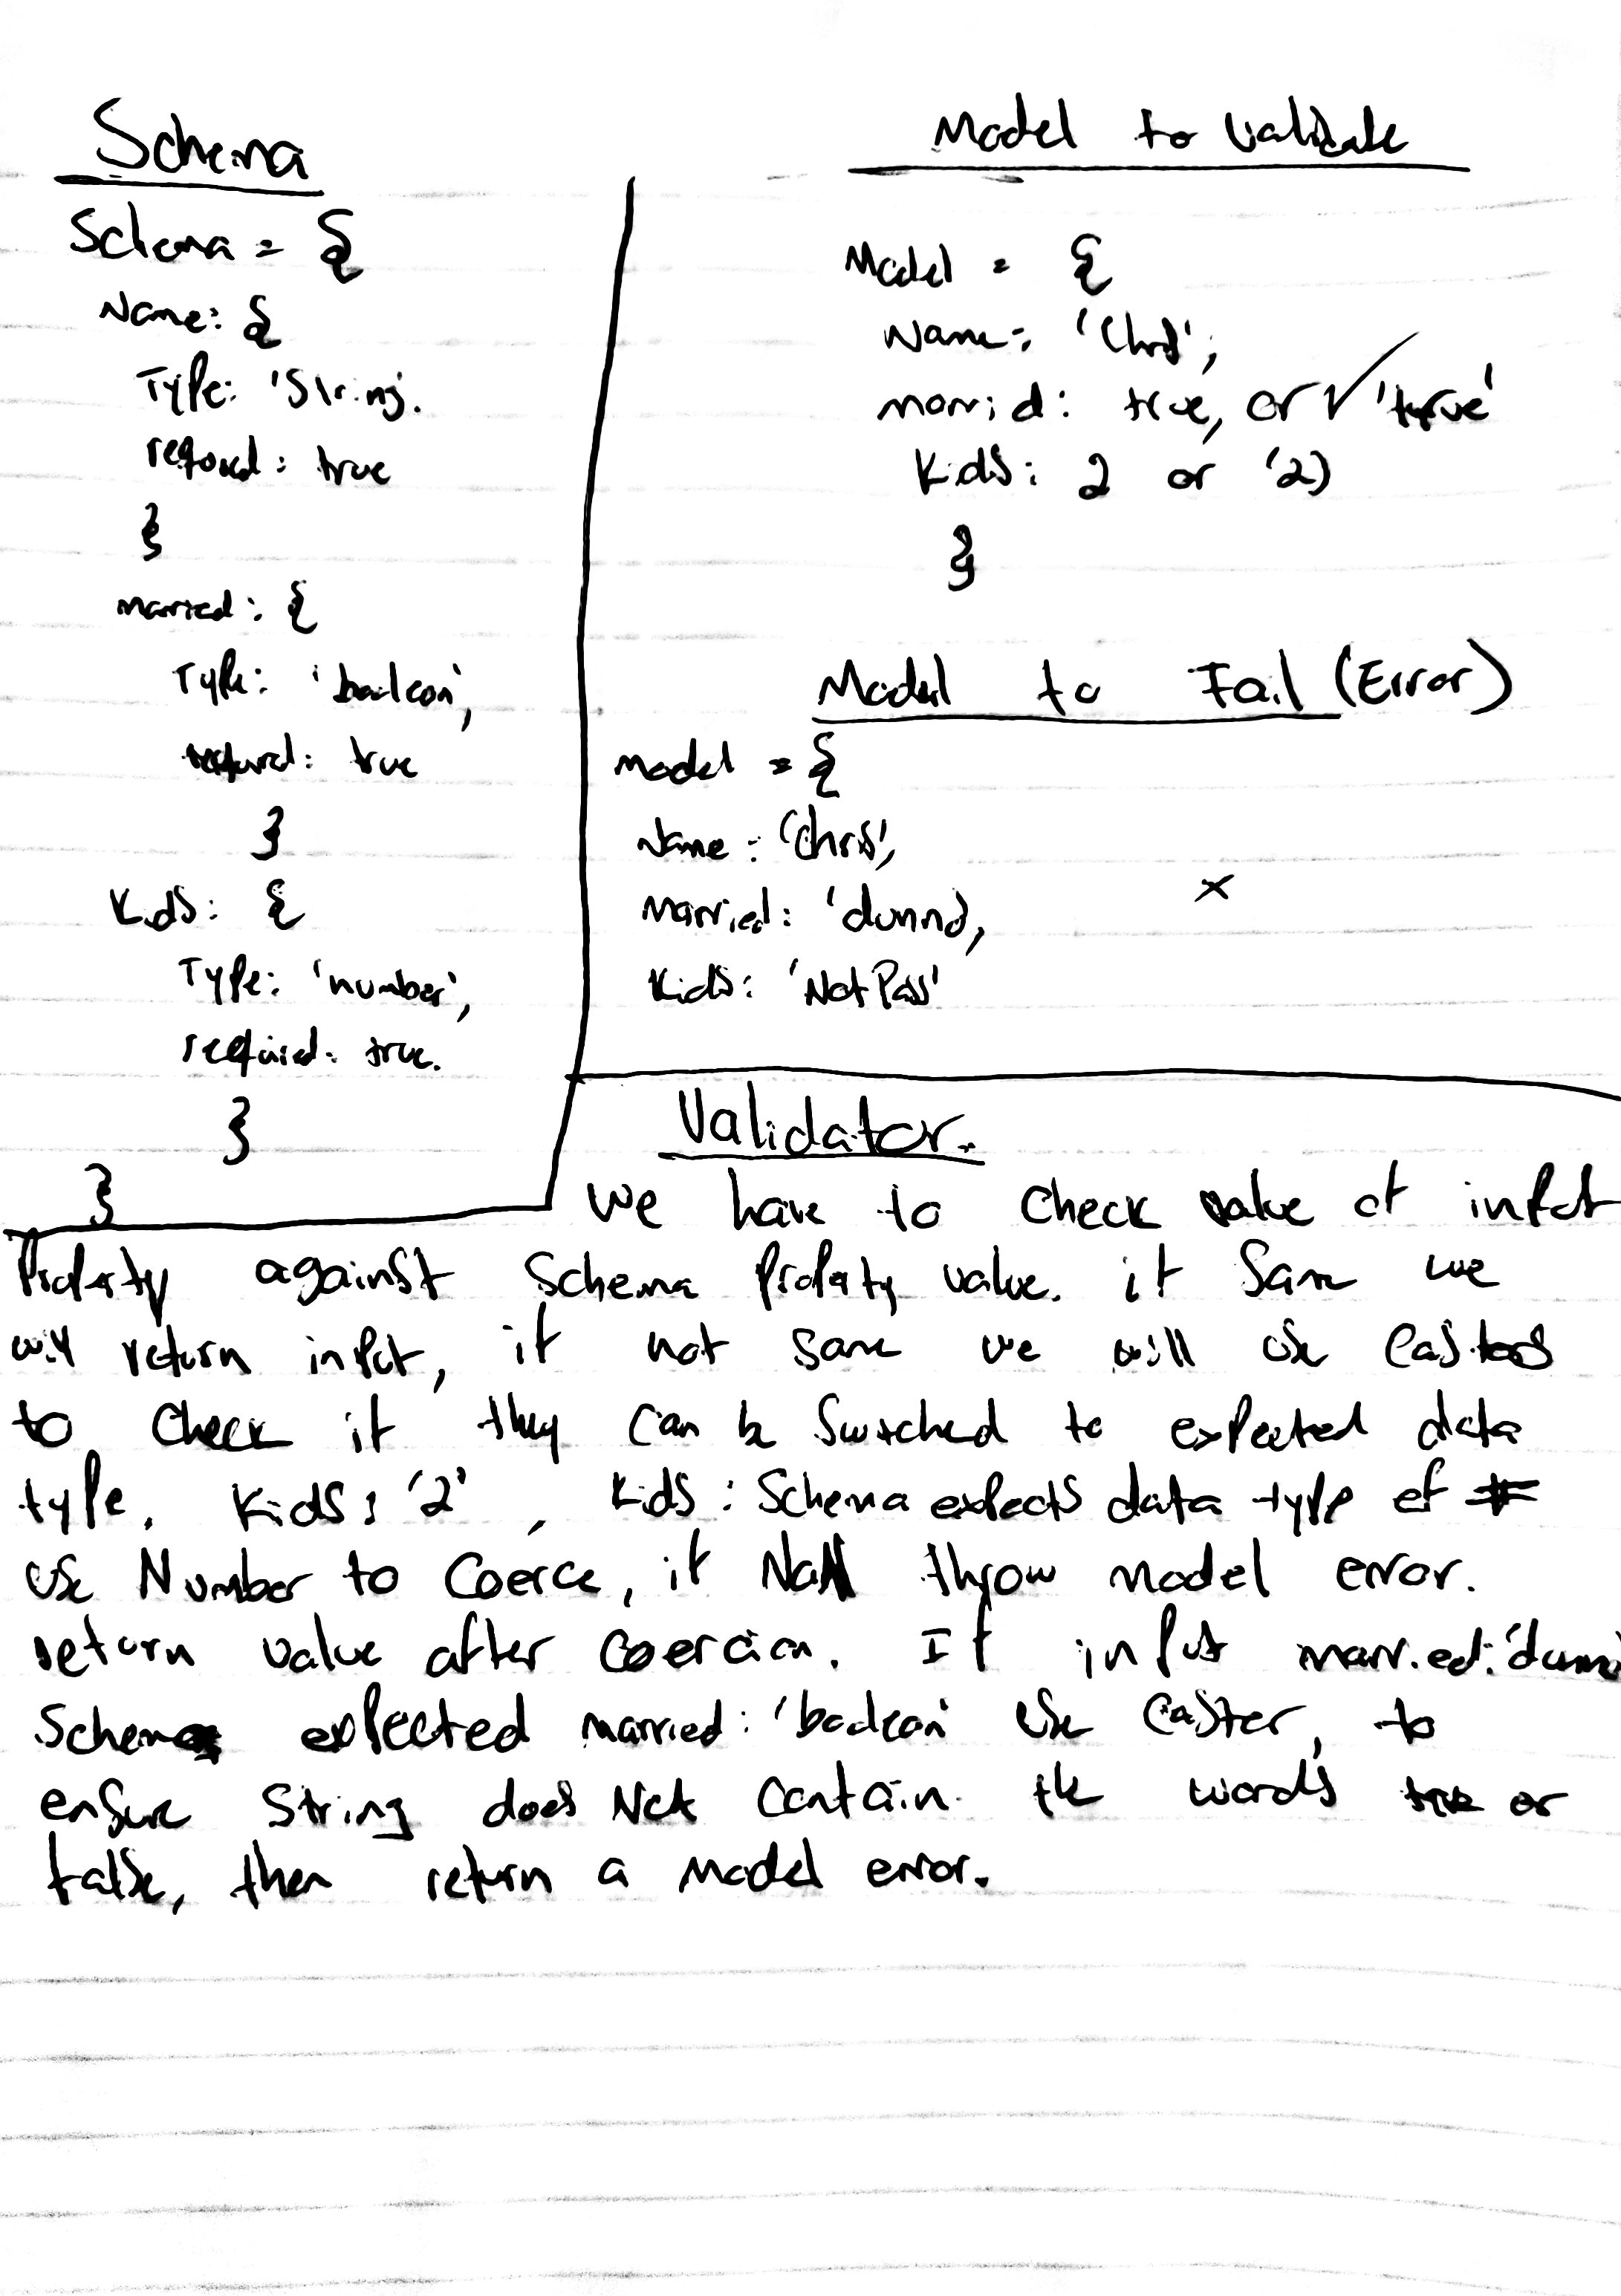 Schema
Schema = {
Name: {
Type: 'String'.
required: true
}
married: {
Type: 'boolean',
required: true
}
Kids: {
Type: 'number',
required: true.
}
}
Model to Validate
Model = {
Name: 'Chris',
married: true, or ✓ 'true'
Kids: 2 or '2'
}
Model to Fail (Error)
model = {
Name: 'Chris',
Married: 'dunno',
Kids: 'Not Pass'
x
Validator.
we have to check value of input
Property against Schema Property value. if Same we
will return input, if not same we will use Casters
to check if they can be Switched to expected data
type. Kids: '2', Kids: Schema expects data type of #
use Number to Coerce, if NaN throw model error.
return value after coercion. If input married: 'dunno
Schema expected married: 'boolean' use Caster, to
ensure String does Not Contain the words true or
false, then return a model error.